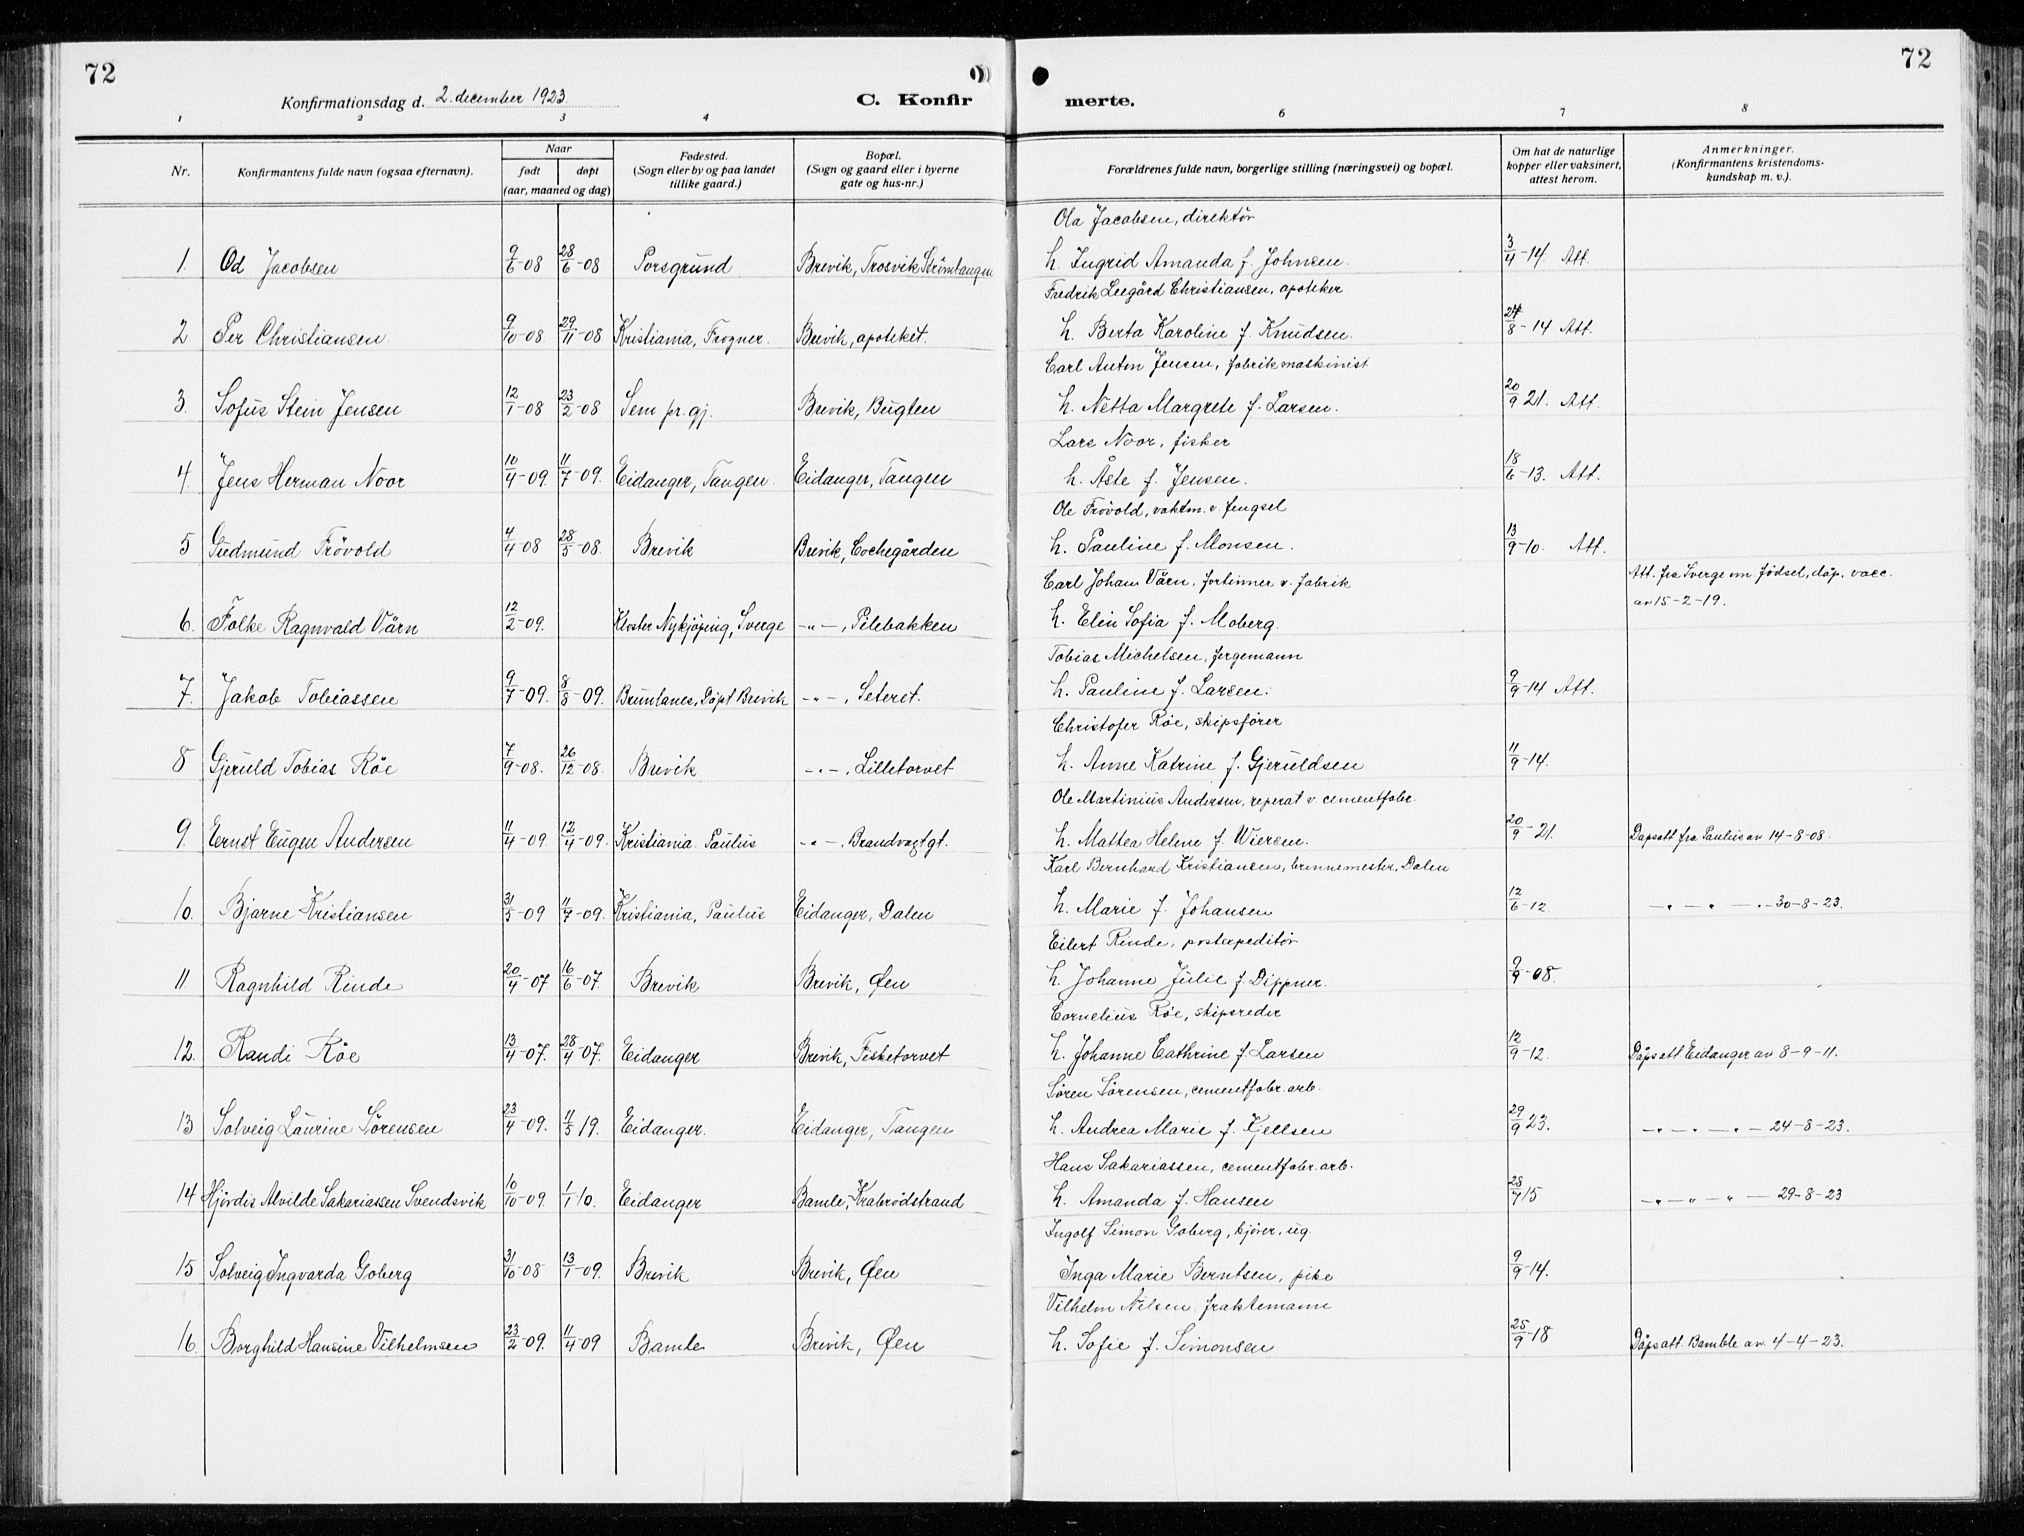 72
72
Konfirmationsdag d. 2. december 1923.
C. Konfir merte.
1 2 3 4 6 7 8
Nr. Konfirmantens fulde navn (ogsaa efternavn). Naar født døpt (aar, maaned og dag) Fødested. (Sogn eller by og paa landet tillike gaard.) Bopæl. (Sogn og gaard eller i byerne gate og hus-nr.) Forældrenes fulde navn, borgerlige stilling (næringsvei) og bopæl. Om hat de naturlige kopper eller vaksinert, attest herom. Anmerkninger. (Konfirmantens kristendoms-kundskap m. v.).
Ola Jacobsen, direktör
1. Od Jacobsen 9/6-08 28/6-08 Porsgrund Brevik, Trosvik Strömtangen h. Ingrid Amanda f. Johnsen. 3/4-14. Att.
Fredrik Leegård Christiansen, apoteker
2 Per Christiansen 9/10-08 29/11-08 Kristiania, Frogner. Brevik, apoteket. h. Berta Karoline f. Knudsen. 24/8-14 Att.
Carl Anton Jensen, fabrikmaskinist
3. Sofus Stein Jensen 12/1-08 23/2-08 Sem pr. gj. Brevik, Bugten h. Netta Margrete f. Larsen. 20/9 21. Att.
Lars Noor, fisker
4. Jens Herman Noor 10/4-09. 11/7-09. Eidanger, Tangen. Eidanger, Tangen h. Åste f. Jensen. 18/6-13. Att.
Ole Frövold, vaktm. v. fengsel
5 Gudmund Frövold 4/4-08 28/5-08. Brevik Brevik, Cochegården h. Pauline f. Monsen. 13/9-10. Att.
Carl Johan Värn, fortinner v. fabrik Att. fra Sverge om födsel, dåp, vacc.
av 15-2-19.
6. Folke Ragnvald Värn 12/2-09. Kloster Nykjöping, Sverge -"-, Pilebakken h. Elin Sofia f. Moberg.
Tobias Michelsen, fergemann
7. Jakob Tobiassen 9/7-09. 8/8-09. Bruntanes, Döpt Brevik -"-, Seteret. h. Pauline f. Larsen. 9/9-14 Att.
Christofer Röe, skipsförer
8 Gjeruld Tobias Röe 7/9-08. 26/12-08. Brevik -"-, Lilletorvet h. Anne Katrine f. Gjeruldsen 11/9-14.
Ole Martinius Andersen, reperat v. cementfabr.
9. Ernst Eugen Andersen 11/4-09. 12/4-09. Kristiania Paulus -"-, Brandvagtgt. h. Mattea Helene f. Wiersen. 20/9-21. Dåpsatt fra Paulus av 14-8-08.
Karl Bernhard Kristiansen, brennemester, Dalen
10. Bjarne Kristiansen 31/5-09 11/7-09. Kristiania, Paulus Eidanger, Dalen h. Marie f. Johansen 12/6-12. -"-"-"- 30-8-23.
Eilert Rinde, postexpeditör
11 Ragnhild Rinde 20/4-07 16/6-07. Brevik Brevik, Øen h. Johanne Julie f. Dippner. 9/9-08.
Cornelius Röe, skipsreder
12. Randi Röe 13/4-07. 28/4-07. Eidanger Brevik, Fisketorvet h. Johanne Cathrine f. Larsen 12/9-12. Dåpsatt Eidanger av 8-9-11.
Sören Sörensen, cementfabr. arb.
13 Solveig Laurine Sörensen 23/4-09. 11/5 19. Eidanger. Eidanger, Tangen h. Andrea Marie f. Kjellsen 29/9 23. -"-"-"- 24-8-23.
Hans Sakariassen, cementfabr. arb.
14 Hjördis Alvilde Sakariassen Svendsvik 10/10-09. 1/1 10. Eidanger Bamle, Krabrödstrand h. Amanda f. Hansen 28/7 15 -"-"-"- 29-8-23
Ingolf Simon Goberg, kjörer, ug.
15 Solveig Ingvarda Goberg 31/10-08 13/1-09. Brevik Brevik, Øen Inga Marie Berntsen, pike 9/9-14.
Vilhelm Nilsen fraktemann
16. Borghild Hansine Vilhelmsen 23/2-09. 11/4-09 Bamle Brevik, Øen h. Sofie f. Simonsen 25/9-18 Dåpsatt. Bamble av. 4-4-23.